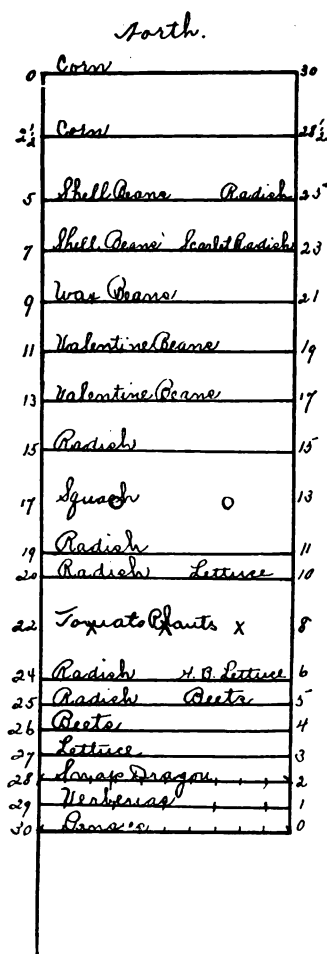 North.
0 Corn 30
2½ Corn 28½
5 Shell Beans Radish 25
7 Shell Beans Scarlet Radish 23
9 Wax Beans 21
11 Valentine Beans 19
13 Valentine Beans 17
15 Radish 15
17 Squash 13
19 Radish 11
20 Radish Lettuce 10
22 Tomato Plants 8
24 Radish H. B. Lettuce 6
25 Radish Beets 5
26 Beets 4
27 Lettuce 3
28 Snap Dragon 2
29 Verbenias 1
30 0